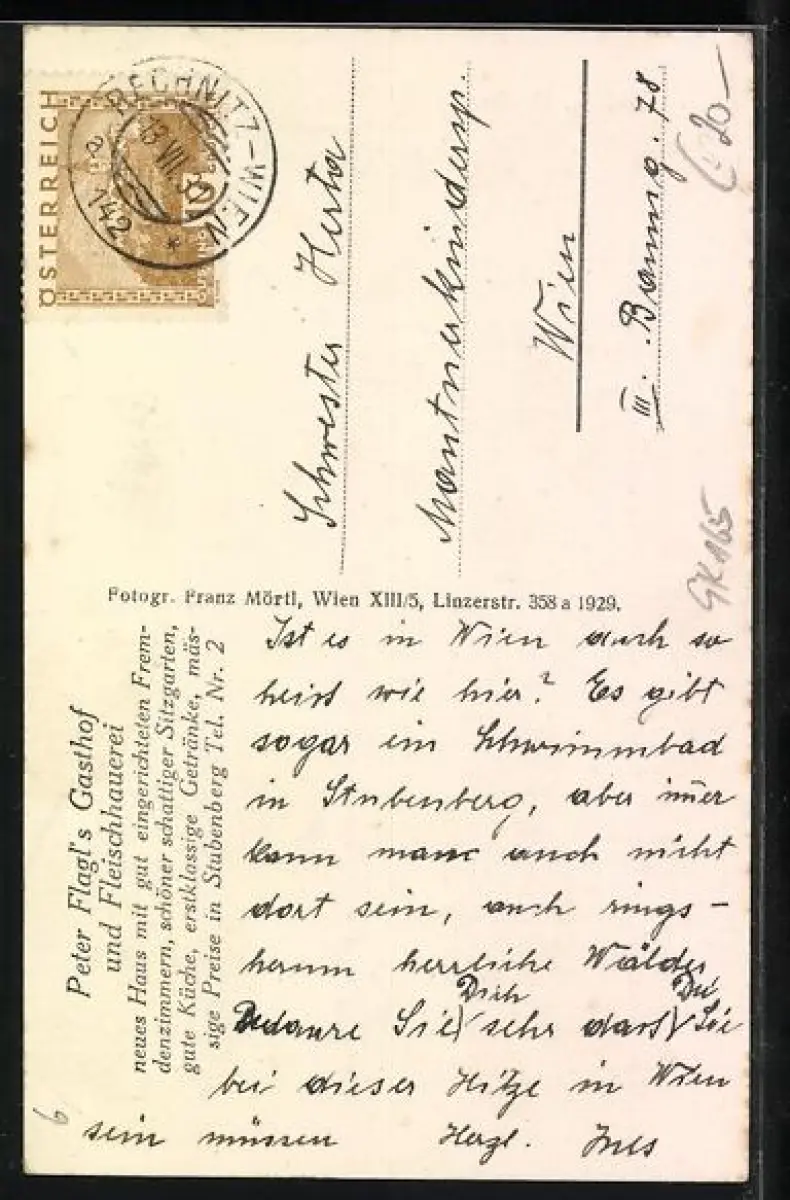 ÖSTERREICH
RECHNITZ-WIEN
13 VII 3
142
a
Schwester Herta
Mautnerkindersp.
Wien
III. Baumg. 78
20—
GK 165
Fotogr. Franz Mörtl, Wien XIII/5, Linzerstr. 358 a 1929.
Peter Flagl's Gasthof
und Fleischhauerei
neues Haus mit gut eingerichteten Frem-
denzimmern, schöner schattiger Sitzgarten,
gute Küche, erstklassige Getränke, mäs-
sige Preise in Stubenberg Tel. Nr. 2
Ist es in Wien auch so
heiss wie hier? Es gibt
sogar ein Schwimmbad
in Stubenberg, aber im̅er
kann man auch nicht
dort sein, auch rings-
herum herrliche Wälder
Dich Du
Bedaure Sie sehr dass Sie
bei dieser Hitze in Wien
sein müssen Herzl. Ines
6